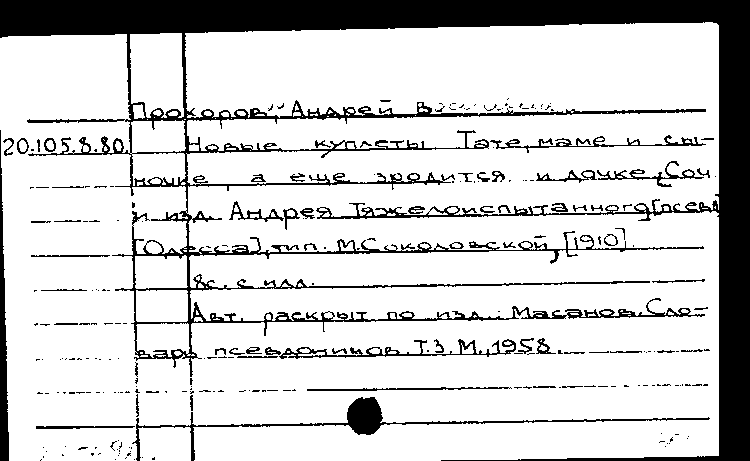 Прохоров, Андрей
20.105.8.80. Новые куплеты Тате, маме и сы-
ночке, а еще зродится и дочке. Соч.
и изд. Андрея Тяжелоиспытанного [псевд
[Одесса], тип. М. Соколовской, [1910].
8с. с илл.
Авт. раскрыт по изд.: Масанов. Сло-
варь псевдонимов. Т.3. М., 1958.